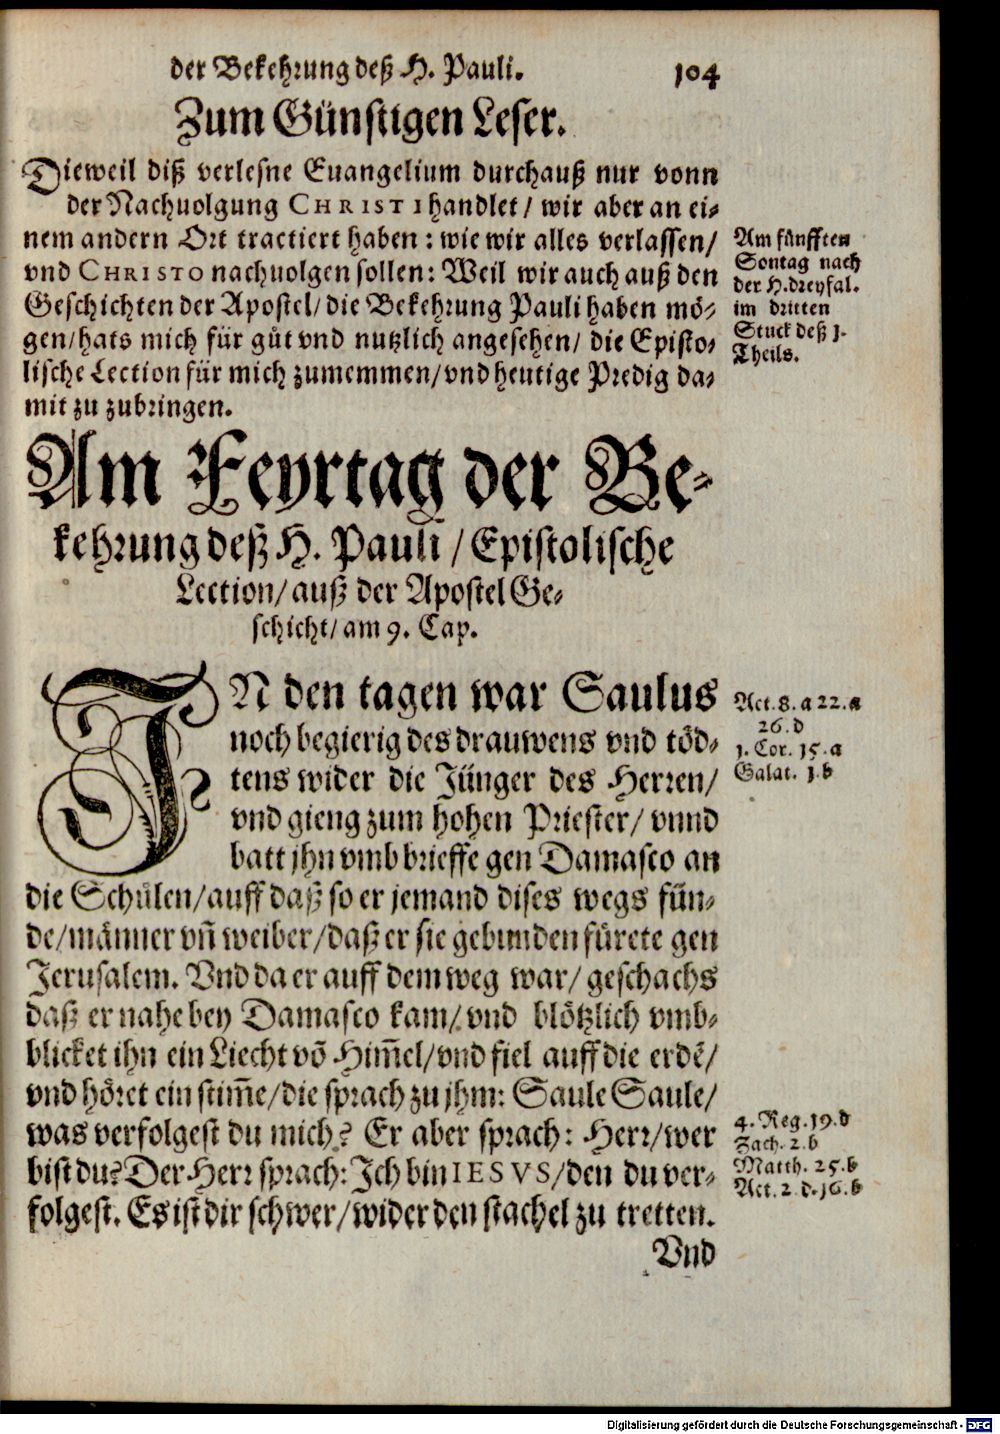 der Bekehrung deß H. Pauli. 104
Zum Günstigen Leser.
Dieweil diß verlesne Euangelium durchauß nur vonn
der Nachuolgung CHRISTI handlet / wir aber an ei-
nem andern Ort tractiert haben : wie wir alles verlassen /
vnd CHRISTO nachuolgen sollen : Weil wir auch auß den
Geschichten der Apostel / die Bekehrung Pauli haben mö-
gen / hats mich für gůt vnd nutzlich angesehen / die Episto-
lische Lection für mich zunemmen / vnd heutige Predig da-
mit zu zubringen.
Am fünfften
Sontag nach
der H. dreyfal.
im dritten
Stuck deß 1.
Theils.
Am Feyrtag der Be-
kehrung deß H. Pauli / Epistolische
Lection / auß der Apostel Ge-
schicht / am 9. Cap.
IN den tagen war Saulus
noch begierig des drauwens vnd töd-
tens wider die Jünger des Herren /
vnd gieng zum hohen Priester / vnnd
batt jhn vmb brieffe gen Damasco an
die Schůlen / auff daß so er jemand dises wegs fün-
de / männer vñ weiber / daß er sie gebunden fürete gen
Jerusalem. Vnd da er auff dem weg war / geschachs
daß er nahe bey Damasco kam / vnd blötzlich vmb-
blicket ihn ein Liecht vō Him̄el / vnd fiel auff die erdē /
vnd höret ein stim̄e / die sprach zu jhm : Saule Saule /
was verfolgest du mich? Er aber sprach : Herr / wer
bist du? Der Herr sprach : Ich bin IESVS / den du ver-
folgest. Es ist dir schwer / wider den stachel zu tretten.
Vnd
Act. 8. a 22. a
26. d
1. Cor. 15. a
Galat. 1. b
4. Reg. 19. d
Zach. 2. b
Matth. 25. b
Act. 2. d. 16. b
Digitalisierung gefördert durch die Deutsche Forschungsgemeinschaft - DFG